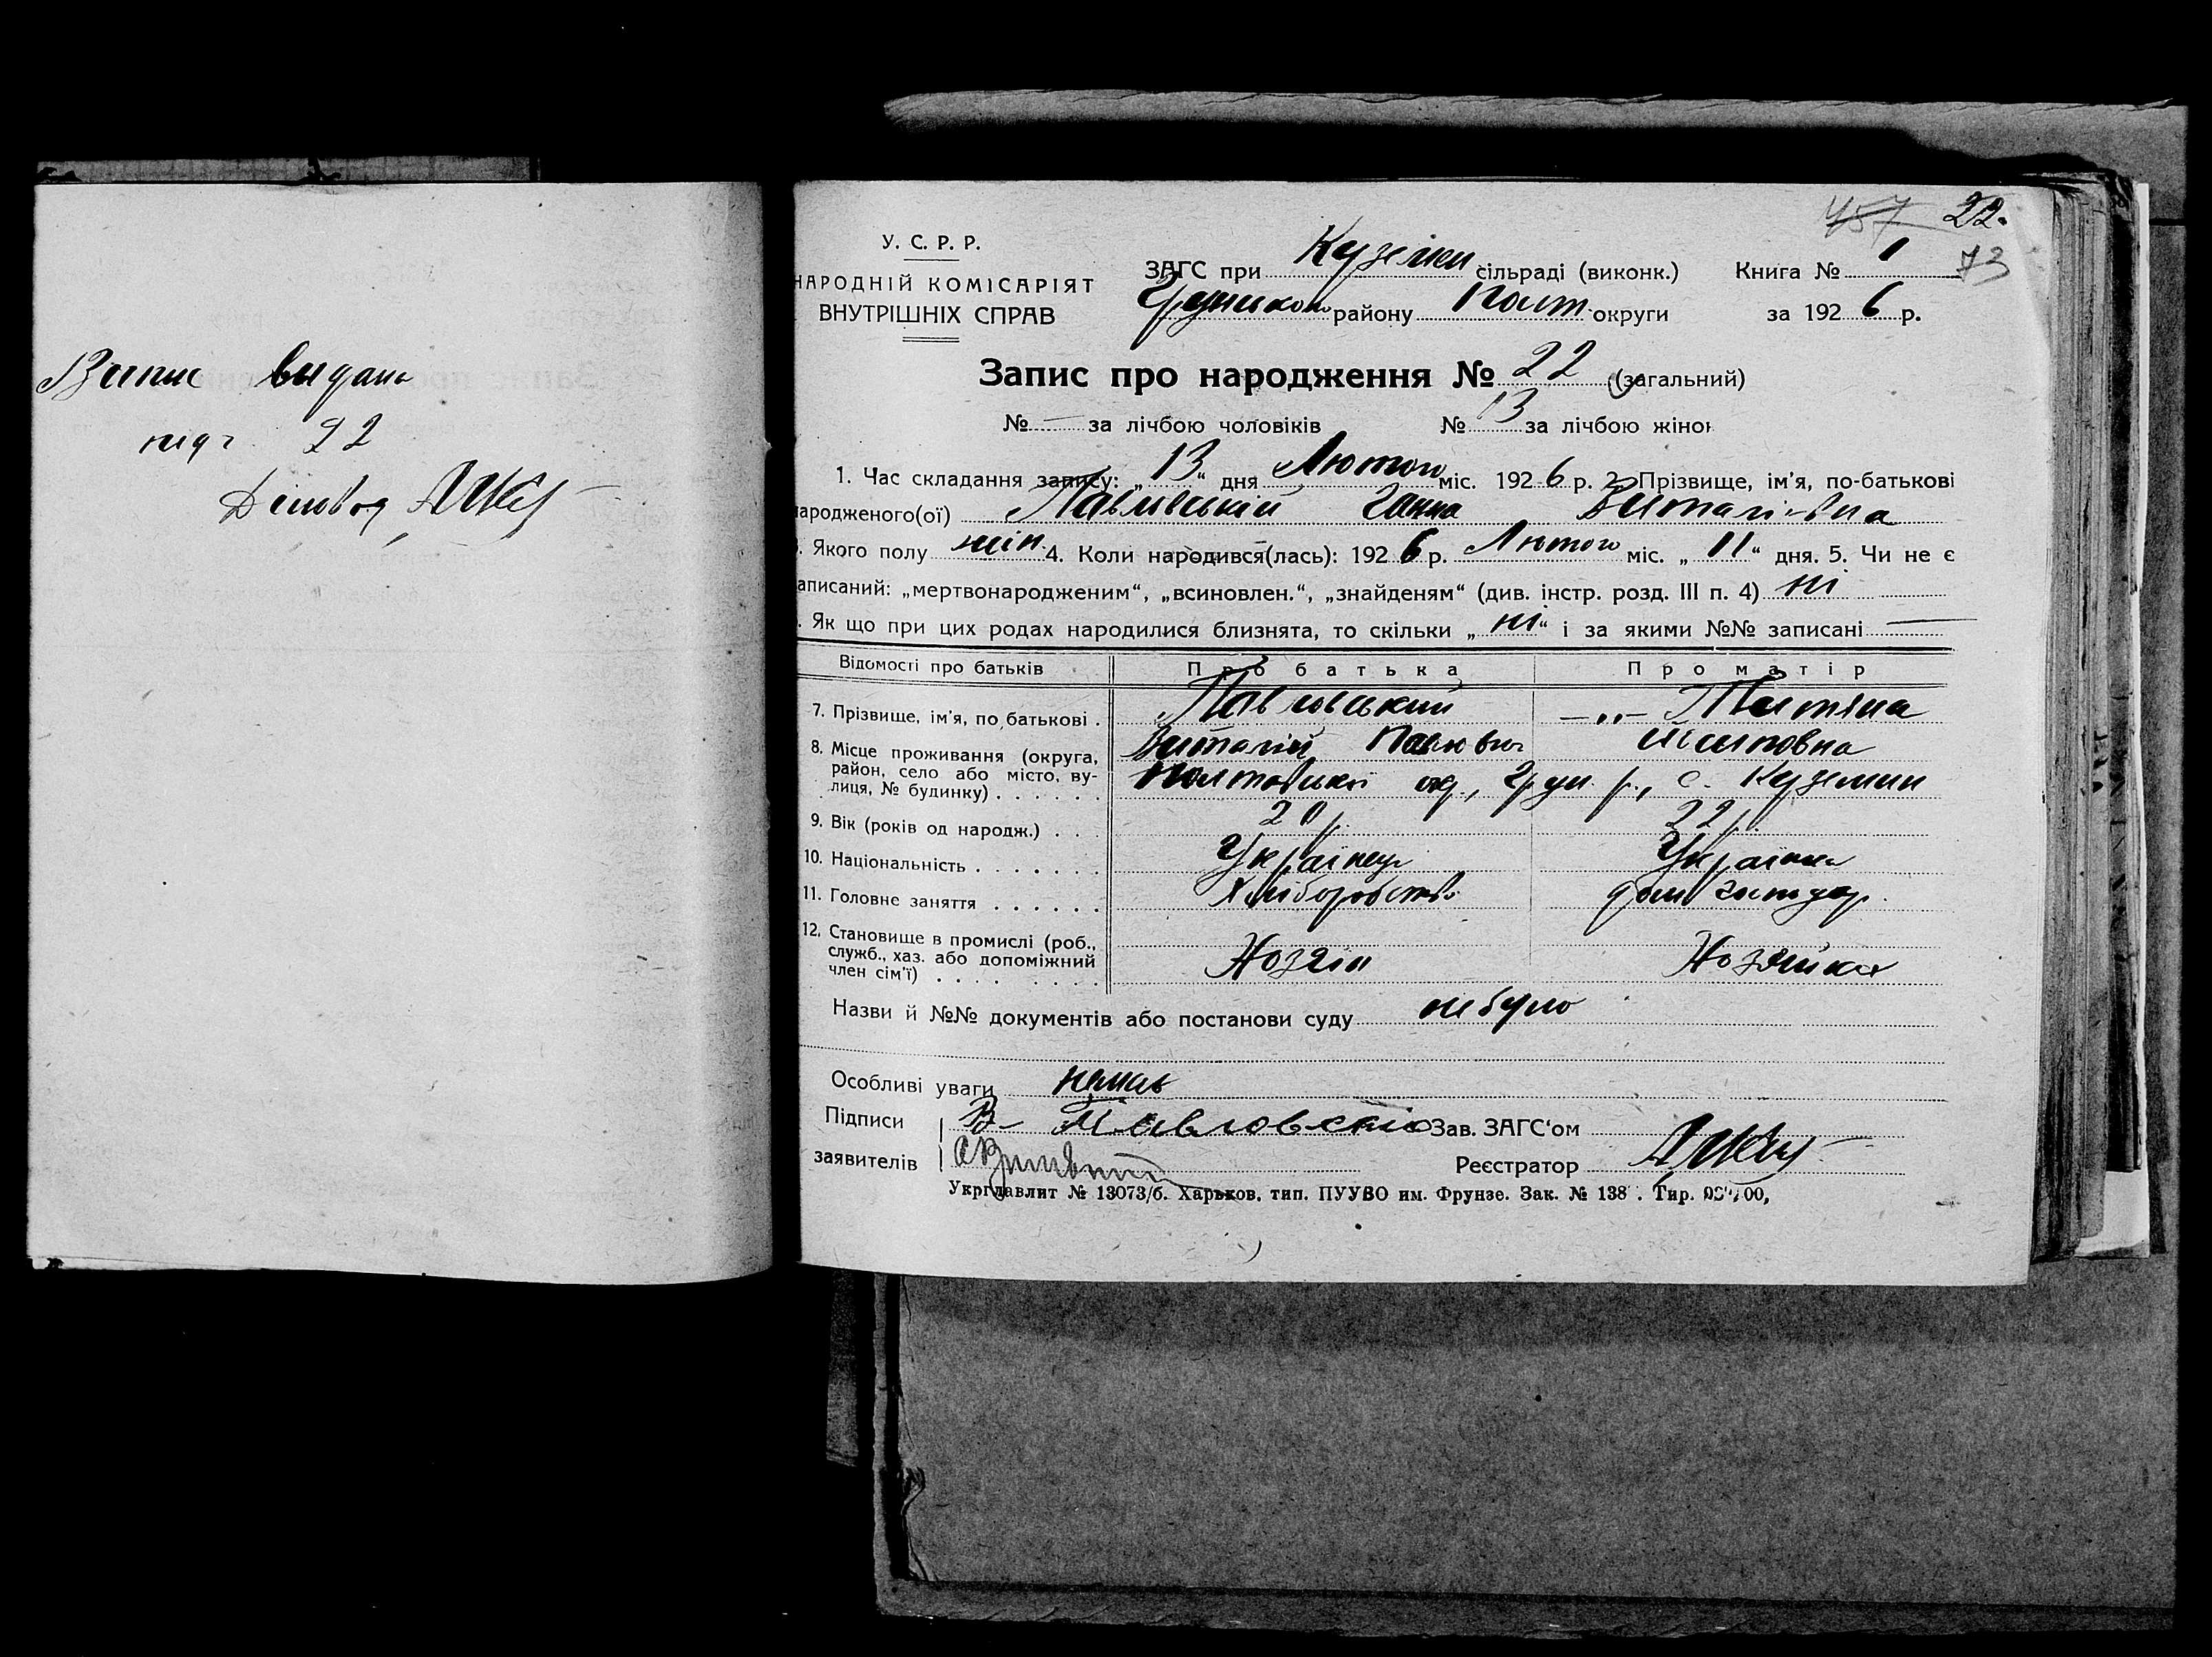 Випис видано
під ч 22
Діловод
457 22.
73
У. С. Р. Р.
НАРОДНІЙ КОМІСАРІЯТ
ВНУТРІШНІХ СПРАВ
ЗАГС при Куземин сільраді (виконк.) Книга № 1
Грунсько району Полт. округи за 1926 р.
Запис про народження № 22 (загальний)
№ — за лічбою чоловіків № 13 за лічбою жінок
1. Час складання запису: „13“ дня Лютого міс. 1926 р. 2. Прізвище, ім'я, по-батькові
народженого(ої) Павловський Ганна Виталівна
. Якого полу жін. 4. Коли народився(лась): 1926 р. Лютого міс. „11“ дня. 5. Чи не є
аписаний: „мертвонародженим“, „всиновлен.“, „знайденям“ (див. інстр. розд. III п. 4) ні
. Як що при цих родах народилися близнята, то скільки „ні“ і за якими №№ записані —
Відомості про батьків Про батька Про матір
7. Прізвище, ім'я, по батькові . Павловський —„— Татяна
Виталій Павлович Осиповна
8. Місце проживання (округа, район, село або місто, вулиця, № будинку) . . . . . . Полтавська окр., Грун. р., с. Куземин
9. Вік (років од народж.) . . . 20 р. 22 р.
10. Національність . . . . . . . Українец Українка
11. Головне заняття . . . . . . Хліборобство дом. господар.
12. Становище в промислі (роб.,
служб., хаз. або допоміжний
член сім'ї) . . . . . . . . Хозяін Хозяйка
Назви й №№ документів або постанови суду не було
Особливі уваги немає
Підписи В Павловскіо Зав. ЗАГС‘ом
заявителів Реєстратор
Укрглавлит № 13073/б. Харьков, тип. ПУУВО им. Фрунзе. Зак. № 138 . Тир.